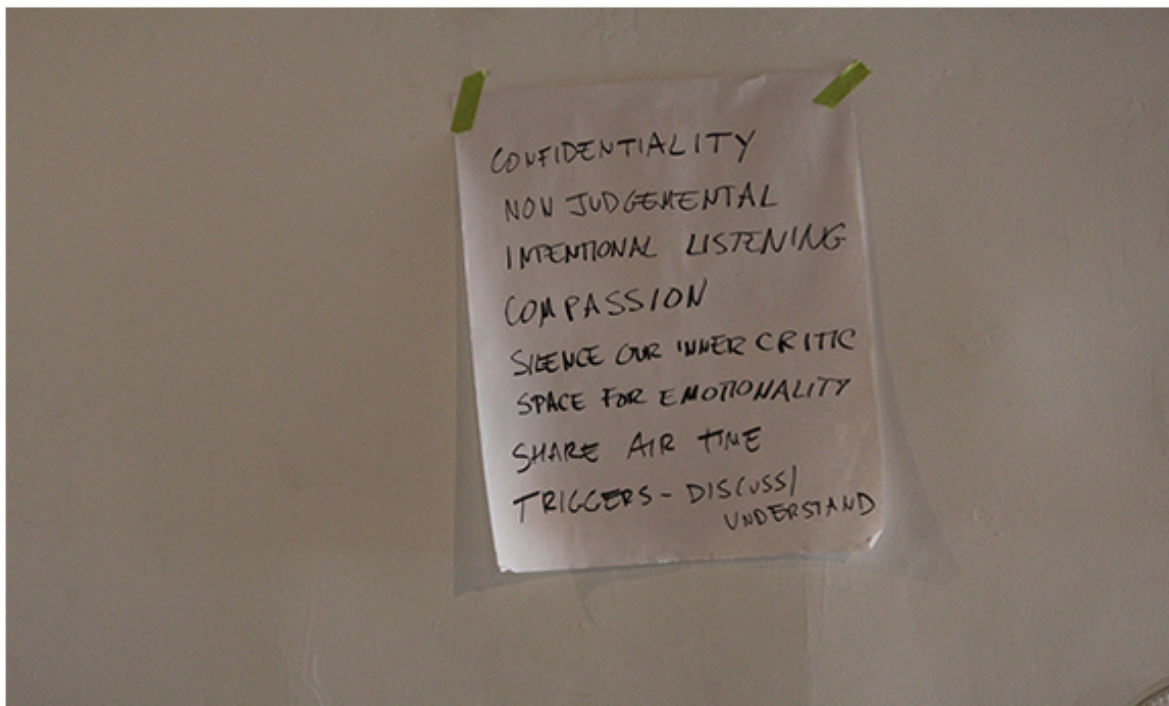 CONFIDENTIALITY
NON JUDGEMENTAL
INTENTIONAL LISTENING
COMPASSION
SILENCE OUR INNER CRITIC
SPACE FOR EMOTIONALITY
SHARE AIR TIME
TRIGGERS - DISCUSS/
UNDERSTAND